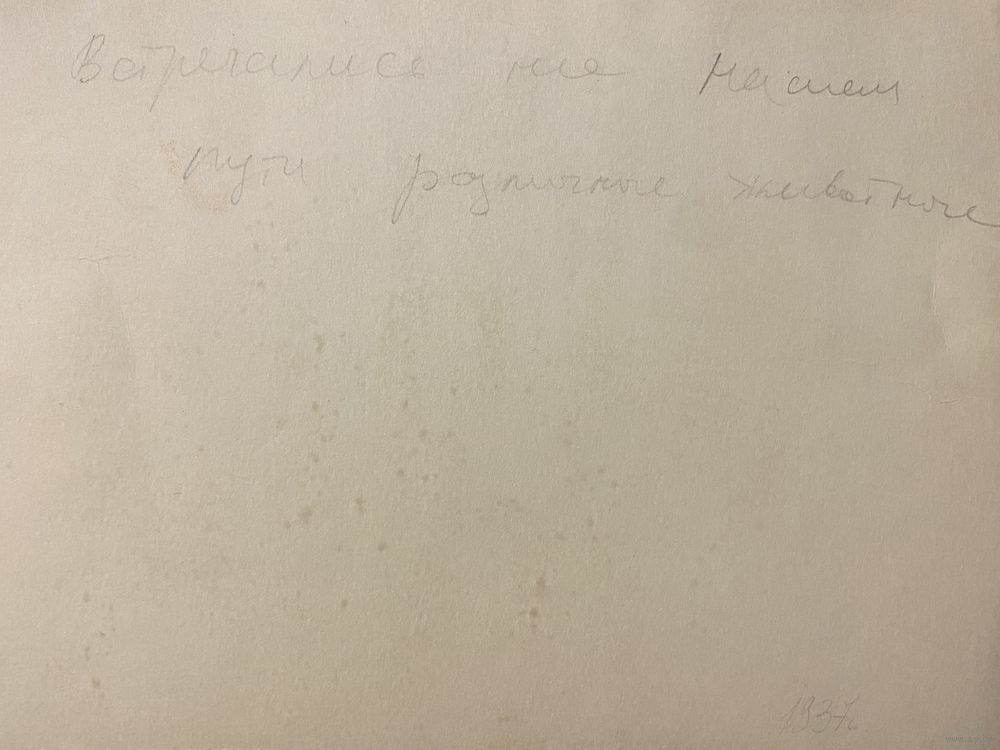 Встречались на нашем
пути различные животные
1937г